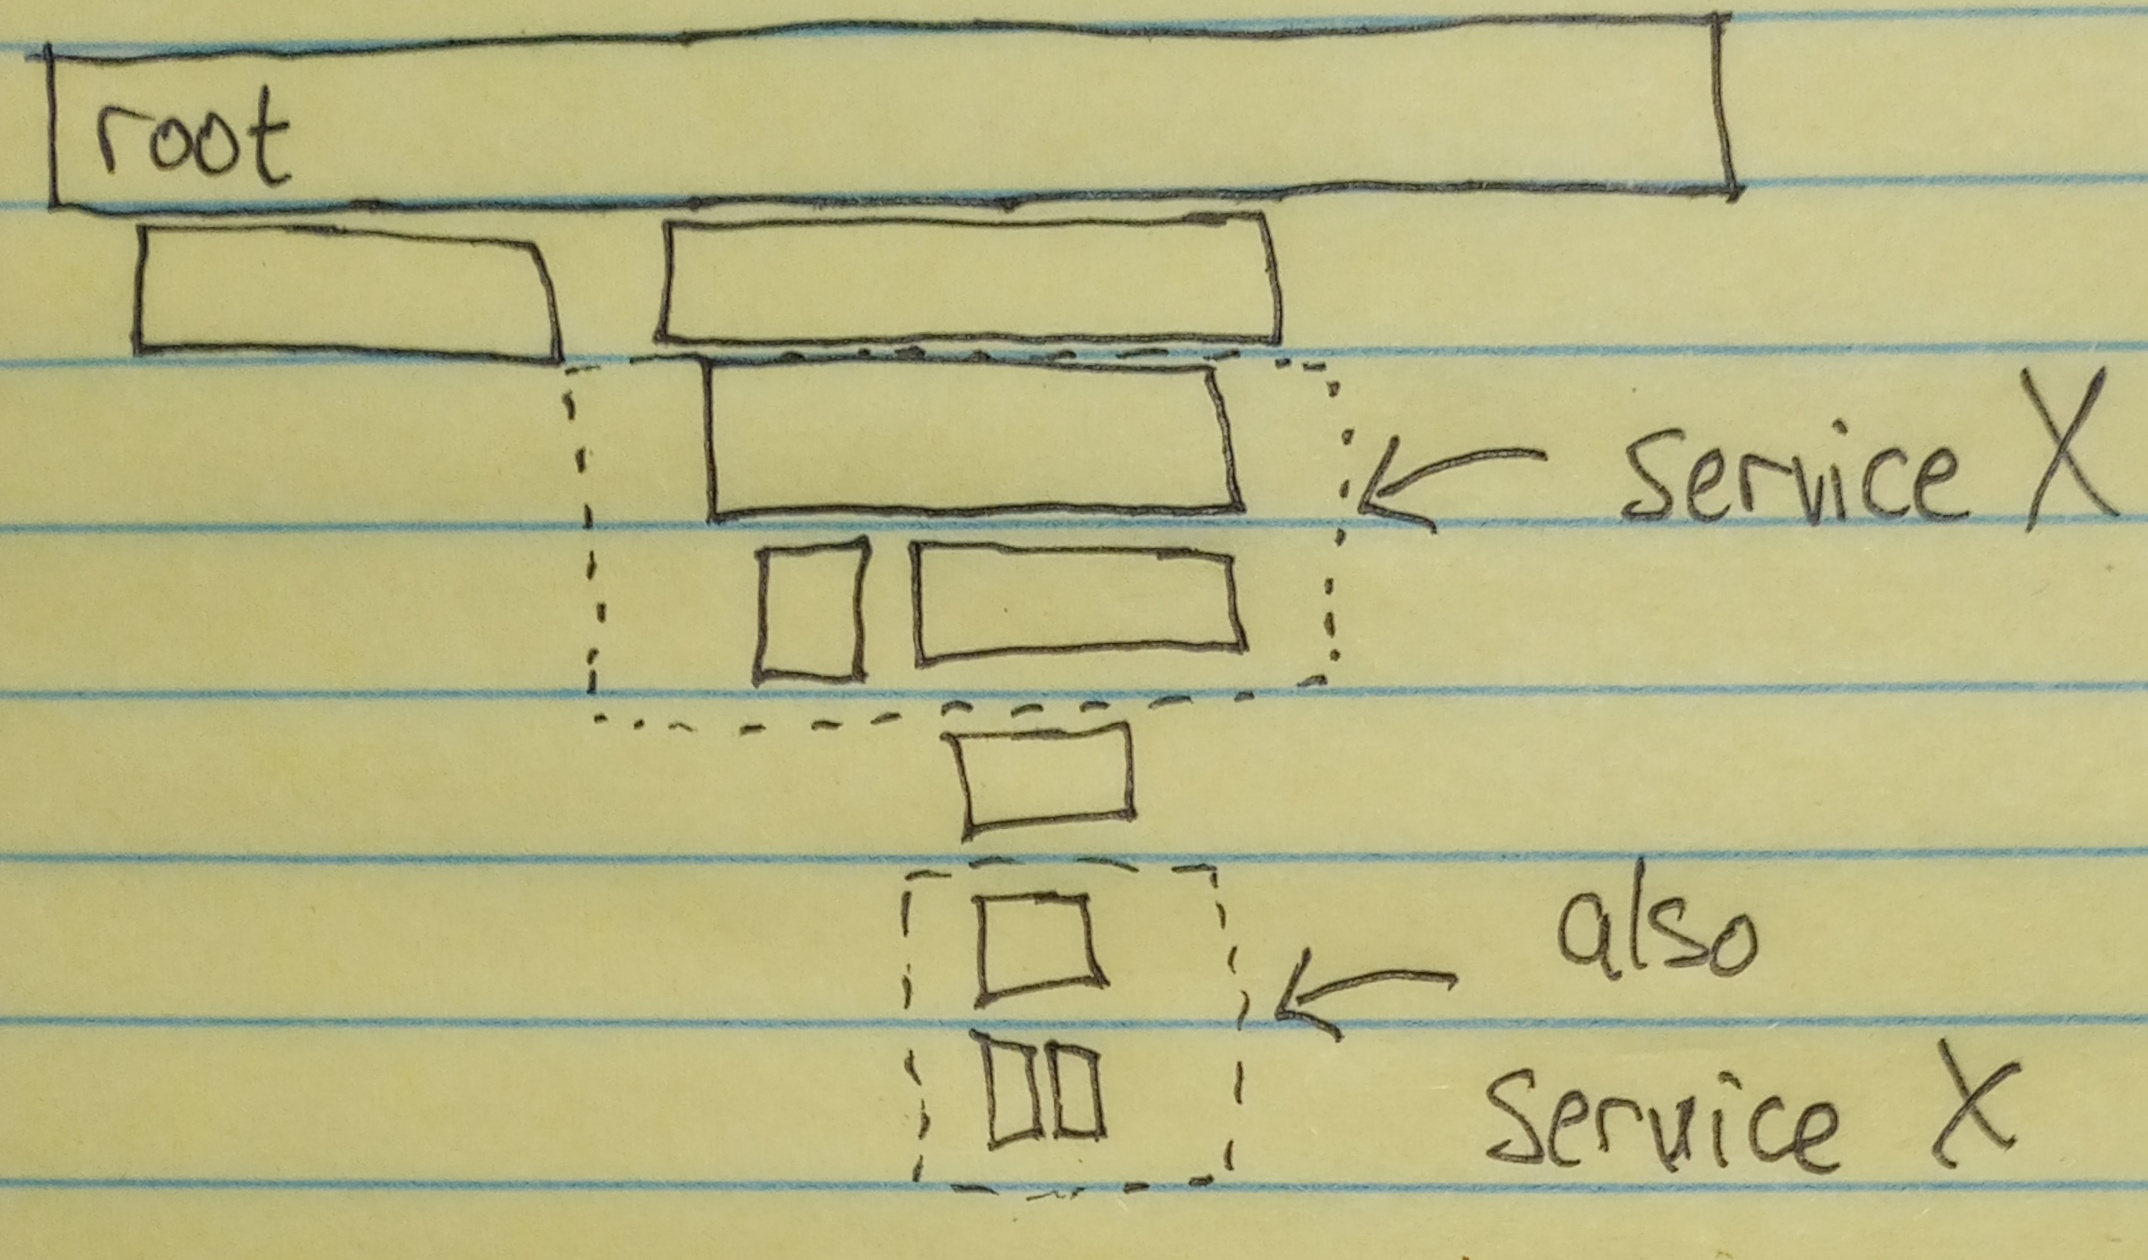 root
service X
also
service X